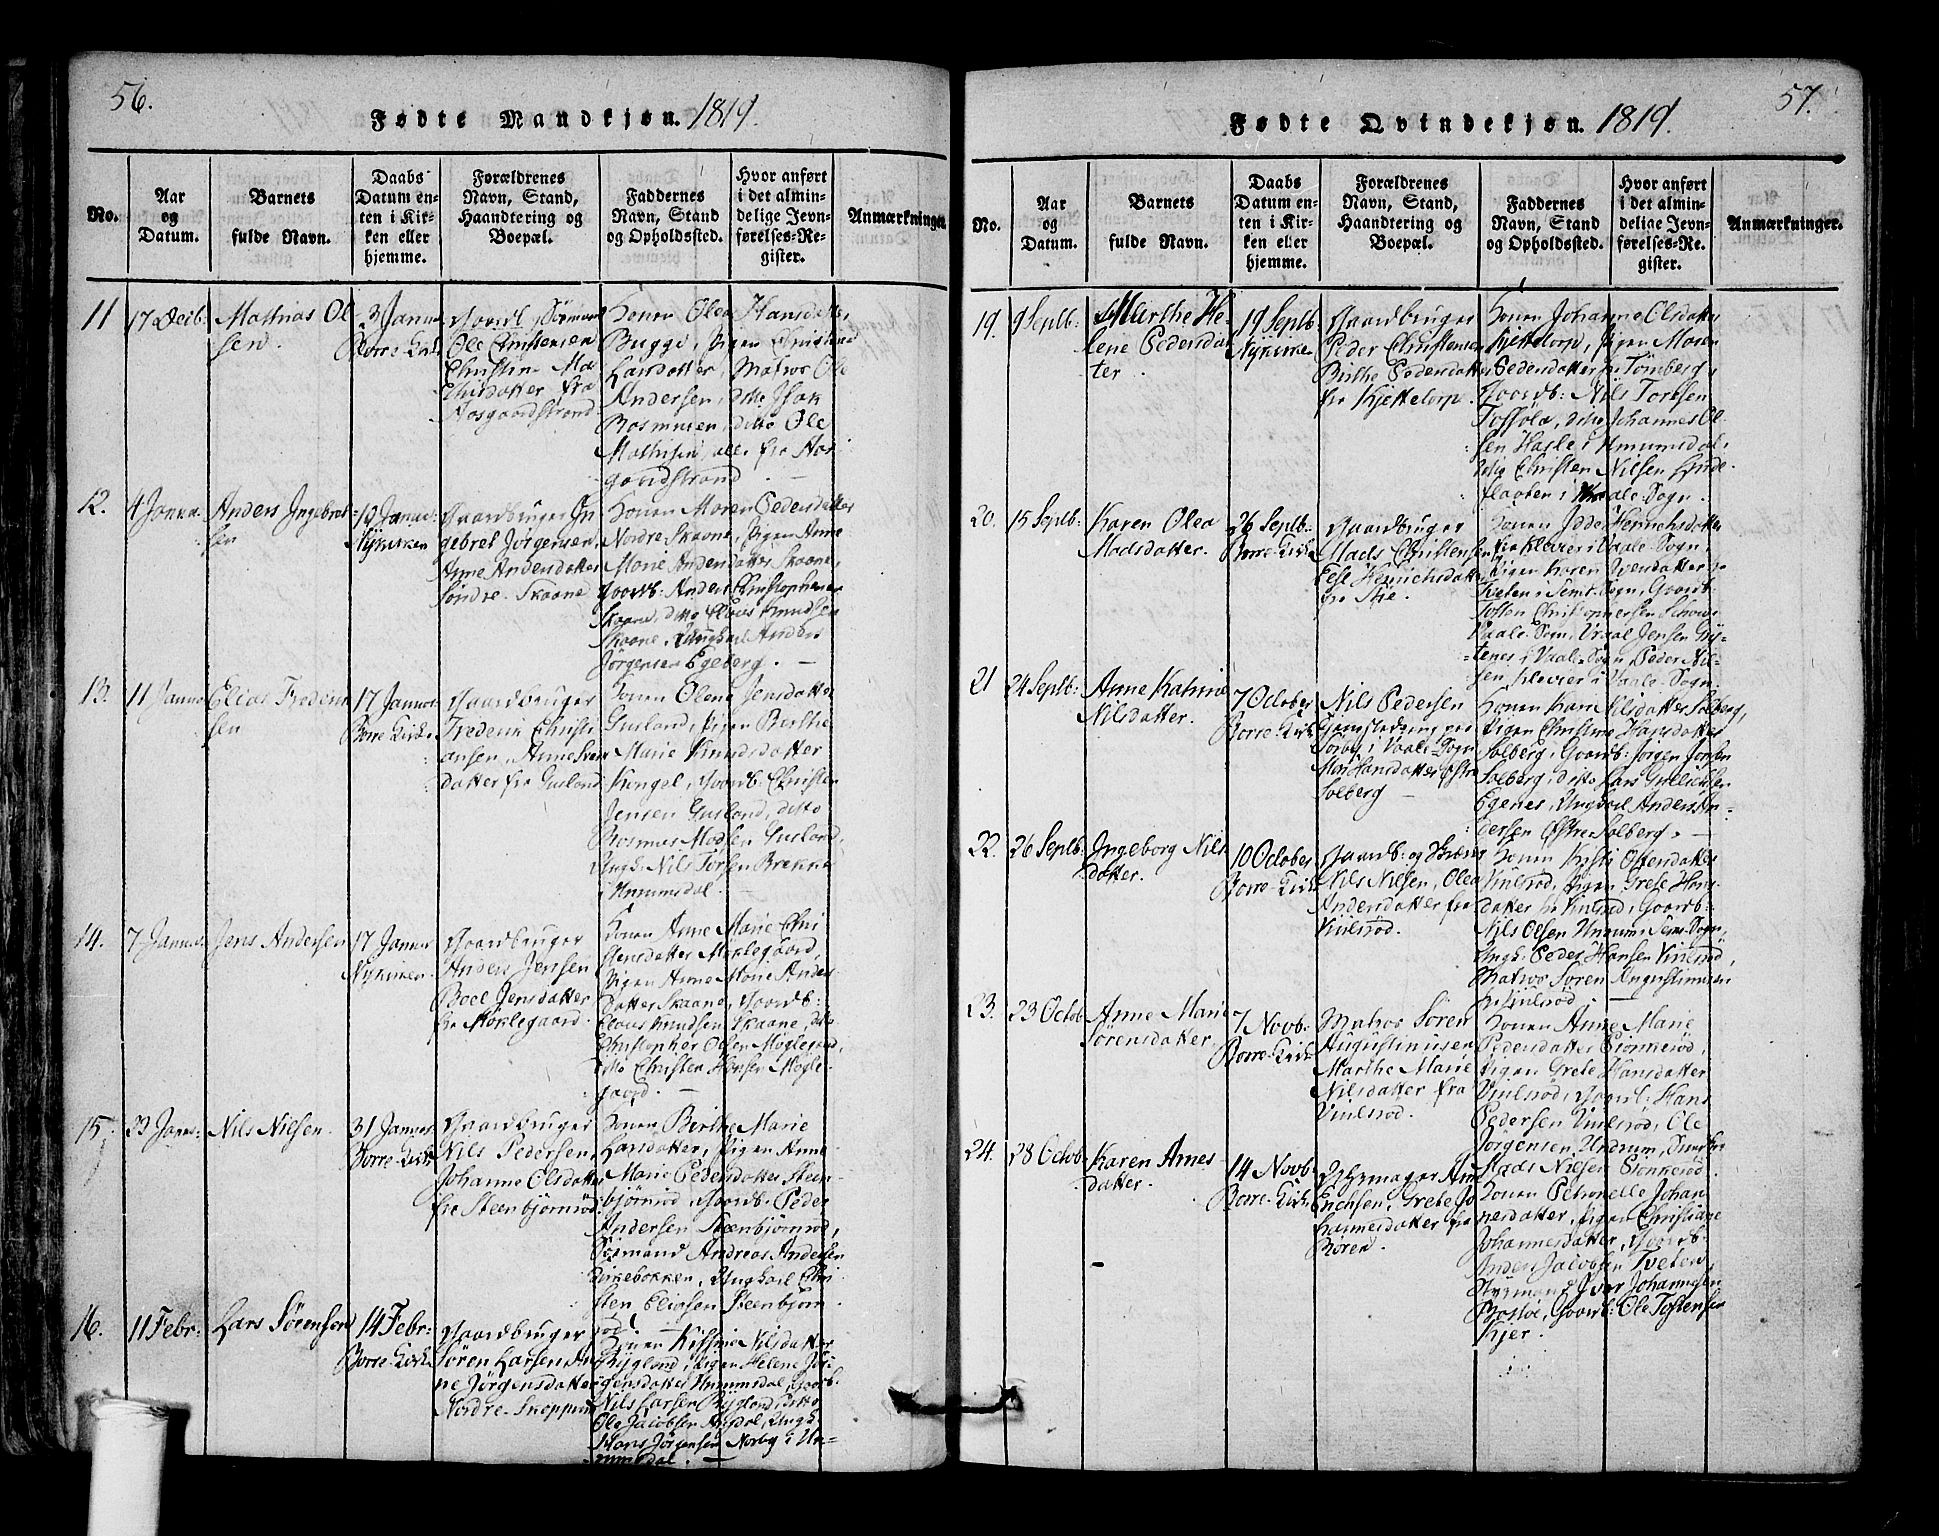 56.
Fødte Mandkjøn. 1819.
No.
Aar
og
Datum.
Barnets
fulde Navn.
Daabs
Datum en-
ten i Kir-
ken eller
hjemme.
Forældrenes
Navn, Stand,
Haandtering og
Boepæl.
Faddernes
Navn, Stand
og Opholdssted.
Hvor anført
i det almin-
delige Jevn-
førelses-Re-
gister.
Anmærkninger.
11
17 Decb.
Mathias Ol
sen.
3 Janua
Borre-Kirke
Gaardb., Sømand
Ole Christensen
Christin Ma
thisdatter fra
Aasgaardstrand
Konen Olea Hansdatter
Bugge, Pigen Christine
Larsdatter, Matros Ole
Andersen, ditto Isak
Rasmusen, ditto Ole
Mathisen, alle fra Aas
gaardstrand.
12.
4 Janua.
Anders Ingebret
sen
10 Januar
Nykirken
Gaardbruger In
gebret Jørgensen,
Anne Andersdatter
Søndre-Skaane
Konen Maren Pedersdatter
Nordre Skaane, Pigen Anne
Marie Andersdatter Skaane,
Gaardb: Anders Christophersen
Skaane, ditto Claus Knudsen
Skaane, Ungkarl Anders
Jørgensen Egeberg.
13.
11 Janua
Elias Frederik
sen
17 Januar
Borre-Kirke
Gaardbruger
Frederik Christi
ansen, Anne Iver
datter fra Gusland
Konen Olene Jensdatter
Gusland, Pigen Berthe
Marie Knudsdatter
Kongel, Gaardb: Christen
Jensen Gusland, ditto
Rasmus Madsen Gusland,
Ungk: Nils Torsen Brekke
i Unnumsdal.
14.
7 Januar
Jens Andersen
17 Januar
Nykirken
Gaardbruger
Anders Jensen
Boel Jensdatter
fra Møklegaard.
Konen Anne Marie Chri
stensdatter Møklegaard,
Pigen Anne Marie Anders
datter Skaane, Gaardb:
Claus Knudsen Skaane, ditto
Christopher Olsen Møglegaard,
ditto Christen Hansen Møgle
gaard.
15.
23 Janu:
Nils Nielsen.
31 Januar
Borre-Kirke
Gaardbruger
Nils Pedersen,
Johanne Olsdatter
fra Steenbjørnrød
Konen Berthe Marie
Larsdatter, Pigen Anne
Marie Pedersdatter Steen-
bjørnrød, Gaardb: Peder
Andersen Steenbjørnrød,
Sømand Andreas Andersen
Birkebakken, Ungkarl Chri
sten Eliasen Steenbjørn
16.
11 Febr:
Lars Sørensen
14 Febr:
Borre-Kirke
Gaardbruger
Søren Larsen An
ne Jørgensdatter
Nordre-Skoppum
Konen Kirstine Nilsdatter
Rygland, Pigen Helene Jør
gensdatter Unnumsdal, Gaardb:
Nils Larsen Rygland, ditto
Ole Jacobsen Augdal, Ungk.
Hans Jørgensen Norby i Un-
numsdal.
57.
Fødte Qvindekjøn. 1819.
No.
Aar
og
Datum.
Barnets
fulde Navn.
Daabs
Datum en-
ten i Kir-
ken eller
hjemme.
Forældrenes
Navn, Stand,
Haandtering og
Boepæl.
Faddernes
Navn, Stand
og Opholdssted.
Hvor anført
i det almin-
delige Jevn-
førelses-Re-
gister.
Anmærkninger.
19.
9 Septb:
Marthe He-
lene Pedersda
ter.
19 Septb
Nykirken
Gaardbruger
Peder Christensen
Birthe Pedersdatter
fra Kjettelorp.
Konen Johanne Olsdatter
Kjettelorp, Pigen Maren
Pedersdatter fra Tønsberg,
Gaardb: Nils Toresen
Toffolo, ditto Johannes Ol
sen Hasle i Unnumsdal,
ditto Christen Nilsen Linde
flaaten i Vaale-Sogn.
20.
15 Septb:
Karen Olea
Madsdatter.
26 Septb:
Borre-Kirke
Gaardbruger
Mads Christensen
Else Henrichsdatter
fra Skie.
Konen Idde Henrichsdatter
fra Klevier i Vaale-Sogn,
Pigen Karen Iversdatter
Tveten i Semb-Sogn, Gaardb:
Tosten Christophersen
Vaale-Sogn, Vraal Jensen
i Vaale-Sogn Peder Nil-
sen Klevier i Vaale-Sogn.
21
24 Septb:
Anne Katrine
Nilsdatter.
7 October
Borre-Kirke
Nils Pedersen
Sørby i Vaale-Sogn
Mari Hansdatter Østre
Solberg
Konen Karen Nilsdatter Solberg,
Pigen Christine Hansdatter
Solberg, Gaardb: Jørgen Jensen
Solberg, ditto Lars Gulliksen
Egenes, Ungkarl Anders An-
dersen Østre Solberg.
22.
26 Septb:
Ingeborg Nils
datter.
10 October
Borre-Kirke
Nils Nielsen, Olea
Andersdatter fra
Viulsrød.
Konen Kirsti Ostensdatter
Viulsrød, Pigen Grete Hans
datter fra Viulsrød, Gaardb:
Nils Olsen Undrum Sems-Sogn,
Ungk: Peder Hansen Viulsrød,
Matros Søren Augustinusen
fra Viulsrød
23.
23 Octob
Anne Marie
Sørensdatter.
7 Novb:
Borre-Kirke
Matros Søren
Augustinusen
Marthe Marie
Nilsdatter fra
Viulsrød.
Konen Anne Marie
Pedersdatter Bjonkerød,
Pigen Grete Hansdatter
Viulsrød, Gaardb: Hans
Pedersen Viulsrød, Ole
Jørgensen Undrum,
Mads Nielsen Bjonkerød
24.
28 Octob
Karen Arnes-
datter.
14 Novb:
Borre-Kirke
Arne
Erichsen, Grete Jo
hannesdatter fra
Røren.
Konen Petronelle Johan
nesdatter, Pigen Christiane
Johannesdatter, Gaardb:
Anders Jacobsen Tveten,
Styrmand Iver Johannesen
Gaardb: Ole Tostensen
Kjer.